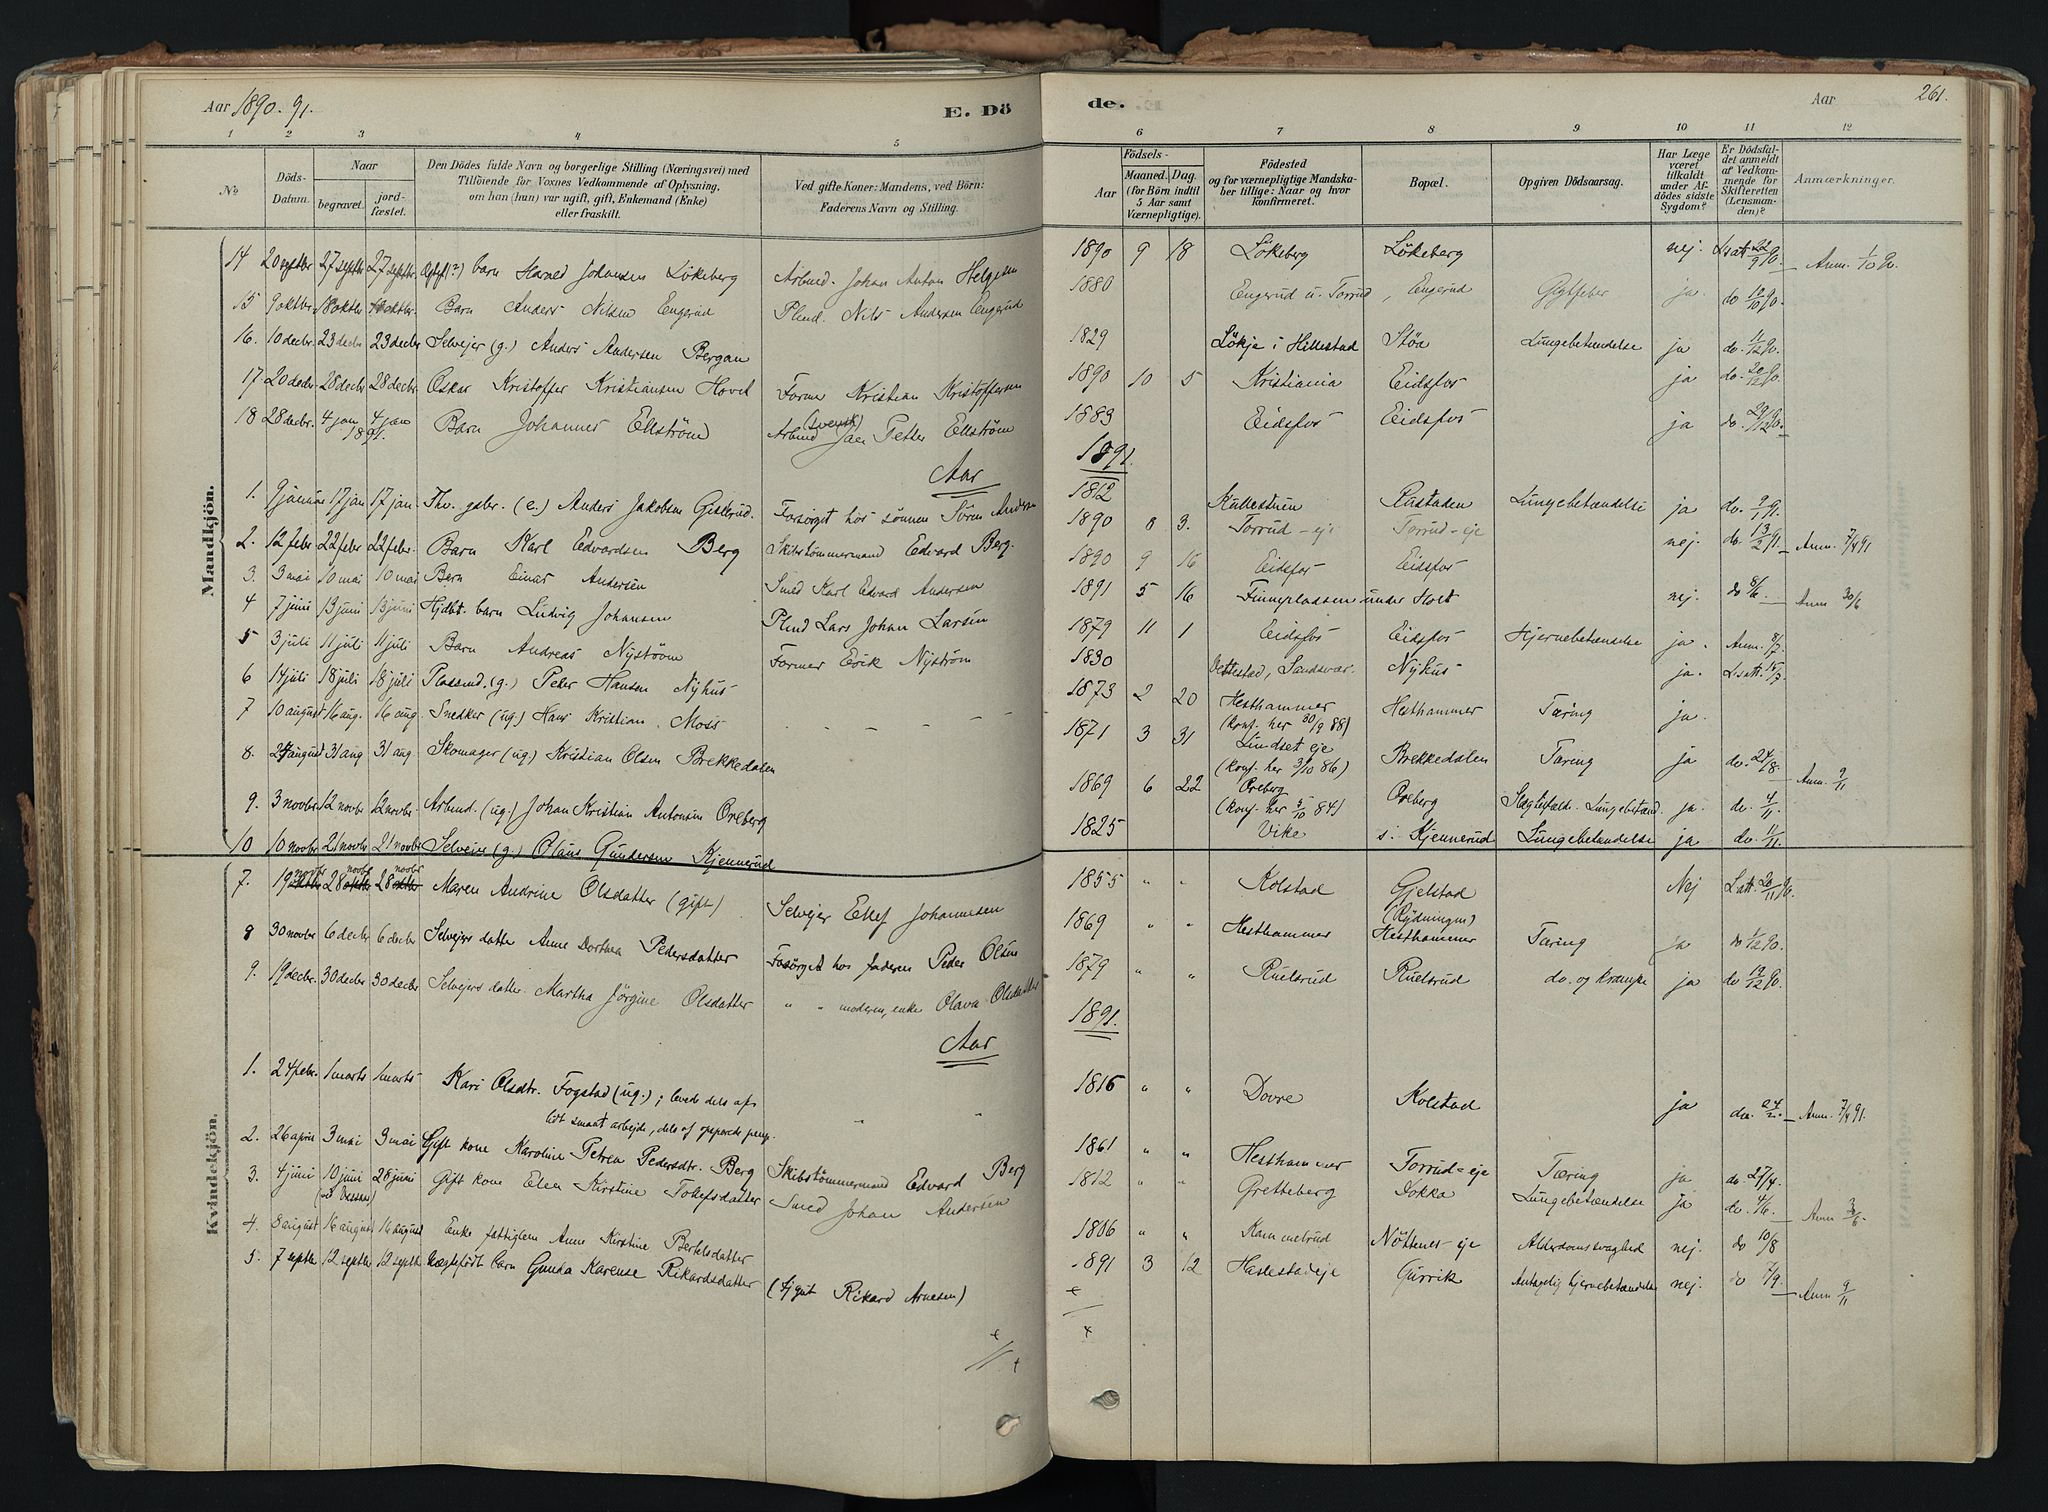 Aar 1890. 91.
E. Dö
de.
Aar
261.
1 2 3 4 5 6 7 8 9 10 11 12
No
Döds-Datum.
Naar
begravet.
jord-fæstet.
Den Dödes fulde Navn og borgerlige Stilling (Næringsvei) med
Tilföiende for Voxnes Vedkommende af Oplysning,
om han (hun) var ugift, gift, Enkemand (Enke)
eller fraskilt.
Ved gifte Koner: Mandens, ved Börn:
Faderens Navn og Stilling.
Födsels-
Aar
Maaned. Dag.
(for Börn indtil
5 Aar samt
Værnepligtige).
Födested
og for værnepligtige Mandska-
ber tillige: Naar og hvor
konfirmeret.
Bopæl.
Opgiven Dödsaarsag.
Har Læge
været
tilkaldt
under Af-
dödes sidste
Sygdom?
Er Dödsfal-
det anmeldt
af Vedkom-
mende for
Skifteretten
(Lensman-
den)?
Anmærkninger.
Mandkjön.
14 20 septbr 27 septbr 27 septbr barn Harald Johansen Lökeberg Arbmd. Johan Anton Helgesen 1890 9 18 Lökeberg Lökeberg nej Lsatt 22/9 90. Anm. 1/10 90.
15 9 oktbr 18 oktbr Barn Anders Nilsen Engerud Plmd. Nils Andersen Engerud 1880 Engerud u. Torrud, Engerud Gigtfeber ja do 10/10 90.
16. 10 decbr. 23 decbr 23 decbr Selvejer (g.) Anders Andersen Bergan 1829 Lökje i Hillestad Stöa Lungebetændelse ja do. 11/12 90.
17 20 decbr 28 decbr 28 decbr. Oskar Kristoffer Kristiansen Hovet Former Kristian Kristoffersen 1890 10 5 Kristiania Eidsfos ja do. 20/12 90.
18 28 decbr. 4 jan 1891. 4 jan Barn Johannes Ellström Arbmd (svensk) Jan Petter Ellström 1883 Eidsfos Eidsfos ja do. 29/12 90.
Aar 1891.
1. 9 januar 17 jan 17 jan. Fhv. gsbr. (e.) Anders Jakobsen Gislerud. Forsörget hos sönnen Sören Anders 1812 Kullestuen Rustaden Lungebetændelse ja do. 9/1 91.
2. 12 febr 22 febr 22 febr. Barn Karl Edvardsen Berg Skibstömmermand Edvard Berg. 1890 8 3. Torrud-eje Torrud-eje nej. do. 13/2 91. Anm. 7/4 91
3. 3 mai 10 mai 10 mai Barn Einar Andersen Smed Karl Edvard Andersen 1890 9 16 Eidsfos Eidsfos
4 7 juni 13 juni 13 juni Hjdbt. barn Ludvig Johansen Plmd Lars Johan Larsen 1891 5 16 Finnepladsen under Holt nej. do 8/6. Anm 30/6
5 3 juli 11 juli 11 juli Barn Andreas Nyström Former Erik Nyström 1879 11 1 Eidsfos Eidsfos Hjernebetændelse ja. Anm. 8/7
6 14 juli 18 juli 18 juli Pladsmd. (g.) Peter Hansen Nyhus 1830 Vettestad, Sandsvær. Nyhus ja. Lsatt. 15/7
7 10 august 16 aug. 16 aug. Snedker (ug.) Hans Kristian Moss 1873 2 20 Hesthammer (konf. her 30/9 88) Hesthammer Tæring ja.
8. 24 august 31 aug 31 aug. Skomager (ug.) Kristian Olsen Brekkedalen 1871 3 31 Lindset eje (konf. her 3/10 86) Brekkedalen Tæring ja do. 24/8.
9. 3 novbr 12 novbr 12 novbr. Arbmd. (ug.) Johan Kristian Antonsen Oreberg 1869 6 22 Oreberg (konf. her 5/10 84) Oreberg Lungebetænd. ja. do. 4/11. Anm. 9/11
10 10 novbr 21 novbr 21 novbr Selvejer (g.) Olaus Gundersen Kjennerud 1825 Vike s. Kjennerud Lungebetændelse ja do. 11/11.
Kvindekjön.
7. 19 novbr 28 novbr 28 novbr Maren Andrine Olsdatter (gift) Selvejer Ellef Johannesen 1855 " " Kolstad Gjelstad (Rydningen) Nej Lsatt. 20/11 90.
8 30 novbr 6 decbr 6 decbr Selvejers datter Anne Dorthea Pedersdatter Forsörget hos faderen Peder Olsen 1869 " " Hesthammer Hesthammer Tæring ja do 1/12 90.
9. 19 decbr. 30 decbr 30 decbr Selvejers datter. Martha Jörgine Olsdatter " " moderen, enke Olava Olsdatter 1879 " " Ruelsrud Ruelsrud do. og krampe ja do 19/12 90.
Aar 1891.
1. 24 febr. 1 marts 1 marts Kari Olsdtr. Fogstad (ug.); levede dels af
lidt smaat arbejde, dels af opsparede peng. " 1816 " " Dovre Kolstad ja do. 24/2. Anm. 7/4 91.
2. 26 april 3 mai 3 mai Gift kone Karoline Petrea Pedersdtr. Berg Skibstömmermand Edvard Berg 1861 " " Hesthammer Torrud-eje Tæring ja do. 27/4.
3. 4 juni 10 juni 28 juni Gift kone Elen Kirstine Tolefsdatter Smed Johan Andersen 1812 " " Gretteberg Sokka Lungebetændelse ja do. 4/6. Anm 30/6.
4. 8 august 16 august 16 august Enke fattiglem Anne Kirstine Bertelsdatter 1806 " " Kammelrud Nöttenes-eje Alderdomssvaghed nej. do 10/8
5. 7 septbr 12 septbr 12 septbr. uægtefödt barn Gunda Karense Rikardsdatter (Rikard Arnesen) 1891 3 12 Haslestadeje Gurrik Antagelig hjernebetændelse nej. do 7/9. Anm 9/11